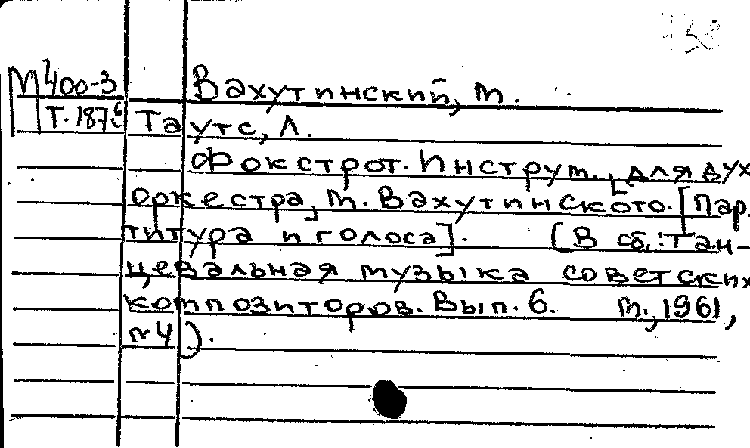 М 400-3 Вахутинский, М.
Т. 187 Таутс, Л.
Фокстрот. Инструм., для дух
оркестра, М. Вахутинского. [Пар
титура и голоса]. (В сб.: Тан-
цевальная музыка советских
композиторов. Вып. 6. М., 1961,
№4).